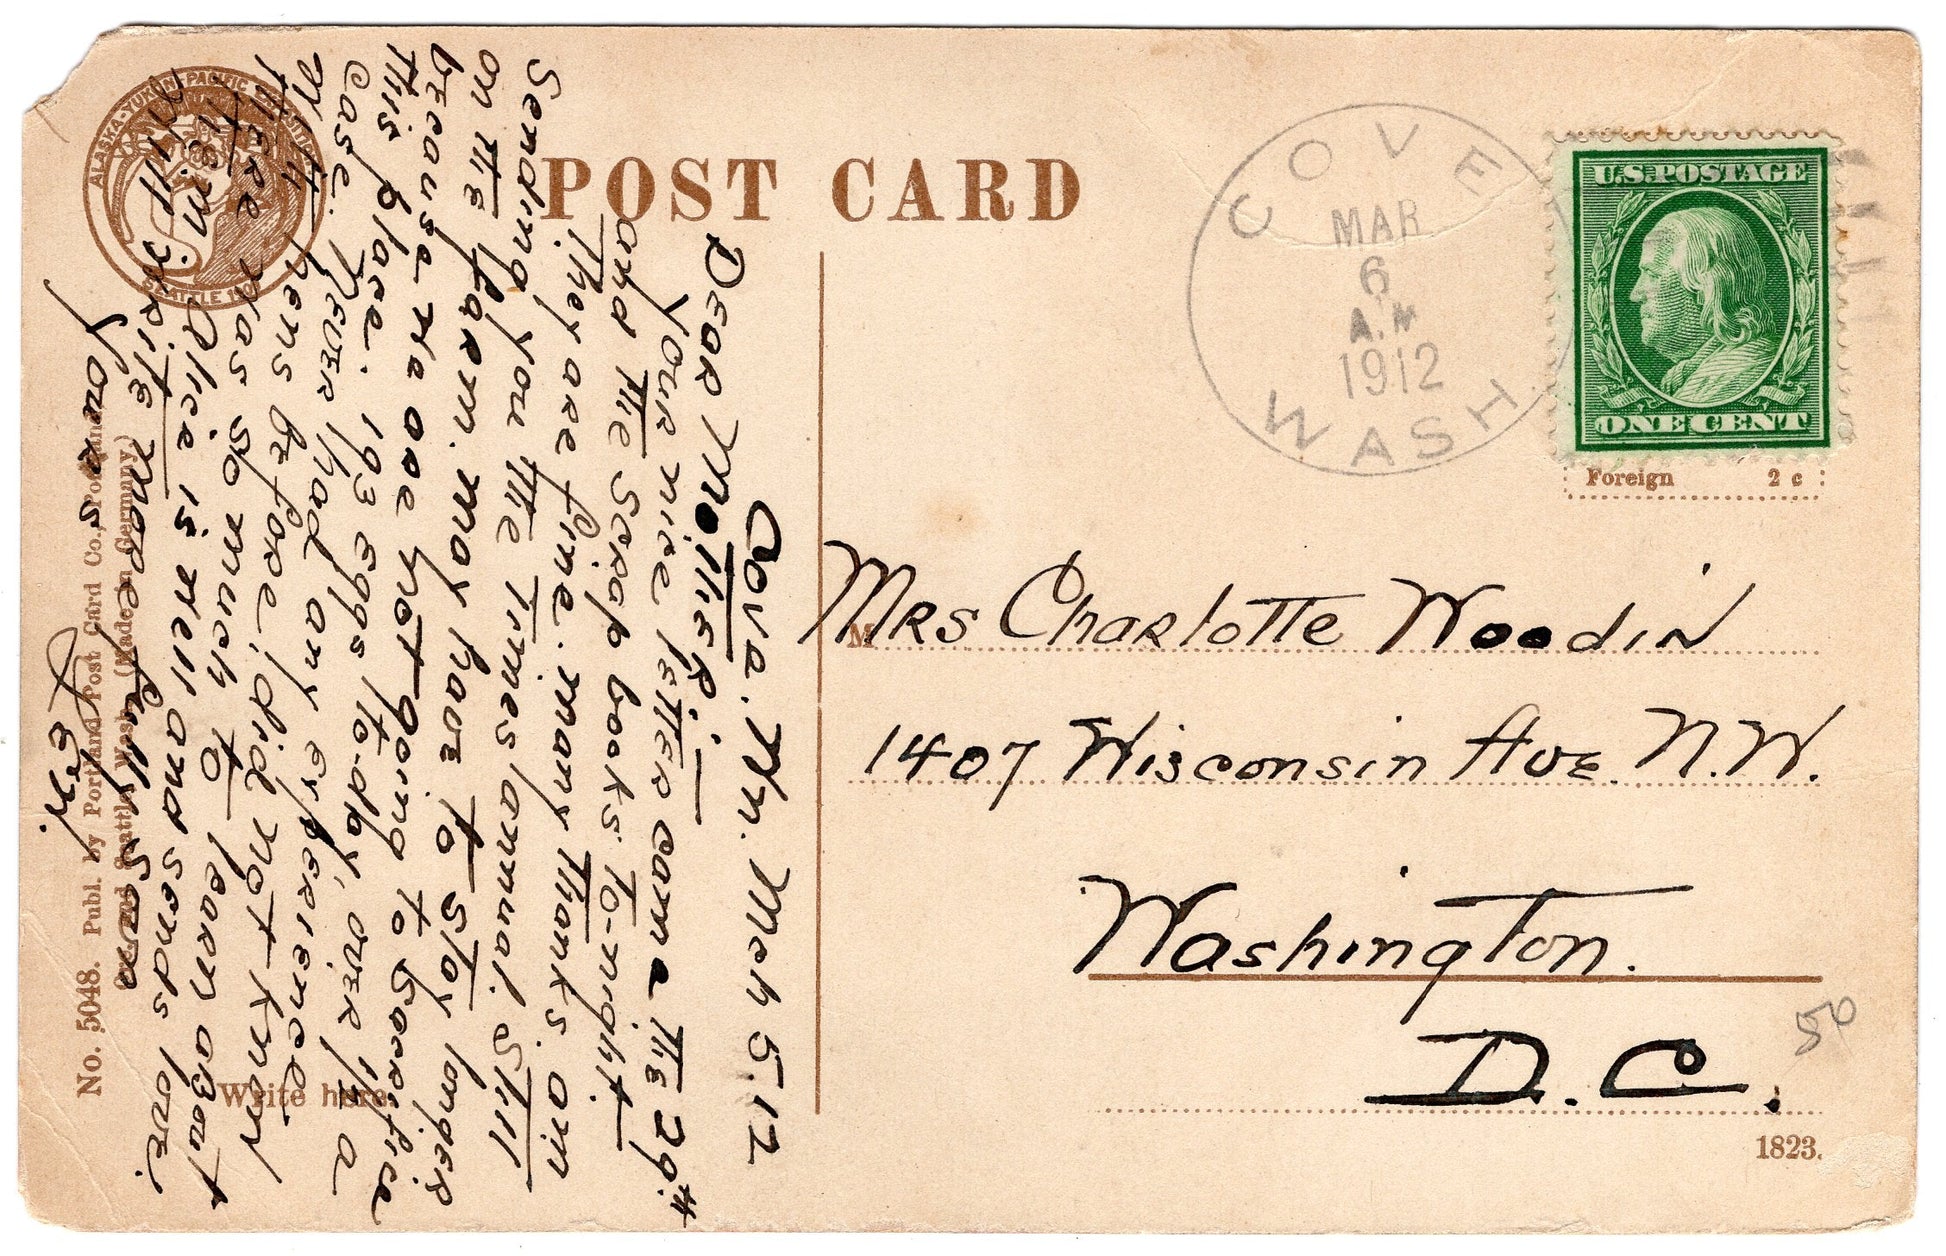 POST CARD
COVE
MAR
6
A.M
1912
WASH
U.S. POSTAGE
ONE CENT
Foreign 2 c
Mrs Charlotte Woodin
1407 Wisconsin Ave. N.W.
Washington.
D.C.
50
1823.
ALASKA-YUKON-PACIFIC
SEATTLE
No. 5048. Publ. by Portland Post Card Co., Portland
and Seattle, Wash. (Made in Germany.)
Write here.
Cove. Wn. Mch 5.12
Dear Mother;—
Your nice letter came the 29th
and the Scrap books to-night
They are fine. many thanks. am
Sending you the Times annual. Still
on the farm. may have to stay longer
because we are not going to sacrifice
this place. 193 Eggs to-day, over 1/2 a
case. Never had any experience
with hens before, did not know
there was so much to learn about
them Alice is well and sends love.
Will write more fully soon
Yours